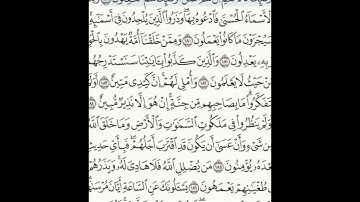 ٱلْأَسْمَآءُ ٱلْحُسْنَىٰ فَٱدْعُوهُ بِهَا ۖ وَذَرُوا۟ ٱلَّذِينَ يُلْحِدُونَ فِىٓ أَسْمَـٰٓئِهِۦ
سَيُجْزَوْنَ مَا كَانُوا۟ يَعْمَلُونَ ١٨٠ وَمِمَّنْ خَلَقْنَآ أُمَّةٌ يَهْدُونَ بِٱلْحَقِّ
وَبِهِۦ يَعْدِلُونَ ١٨١ وَٱلَّذِينَ كَذَّبُوا۟ بِـَٔايَـٰتِنَا سَنَسْتَدْرِجُهُم
مِّنْ حَيْثُ لَا يَعْلَمُونَ ١٨٢ وَأُمْلِى لَهُمْ ۚ إِنَّ كَيْدِى مَتِينٌ ١٨٣
يَتَفَكَّرُوا۟ ۗ مَا بِصَاحِبِهِم مِّن جِنَّةٍ ۚ إِنْ هُوَ إِلَّا نَذِيرٌ مُّبِينٌ ١٨٤
أَوَلَمْ يَنظُرُوا۟ فِى مَلَكُوتِ ٱلسَّمَـٰوَٰتِ وَٱلْأَرْضِ وَمَا خَلَقَ ٱللَّهُ
وَأَنْ عَسَىٰٓ أَن يَكُونَ قَدِ ٱقْتَرَبَ أَجَلُهُمْ ۖ فَبِأَىِّ حَدِيثٍ
بَعْدَهُۥ يُؤْمِنُونَ ١٨٥ مَن يُضْلِلِ ٱللَّهُ فَلَا هَادِىَ لَهُۥ ۚ وَيَذَرُهُمْ
طُغْيَـٰنِهِمْ يَعْمَهُونَ ١٨٦ يَسْـَٔلُونَكَ عَنِ ٱلسَّاعَةِ أَيَّانَ مُرْسَىٰهَا